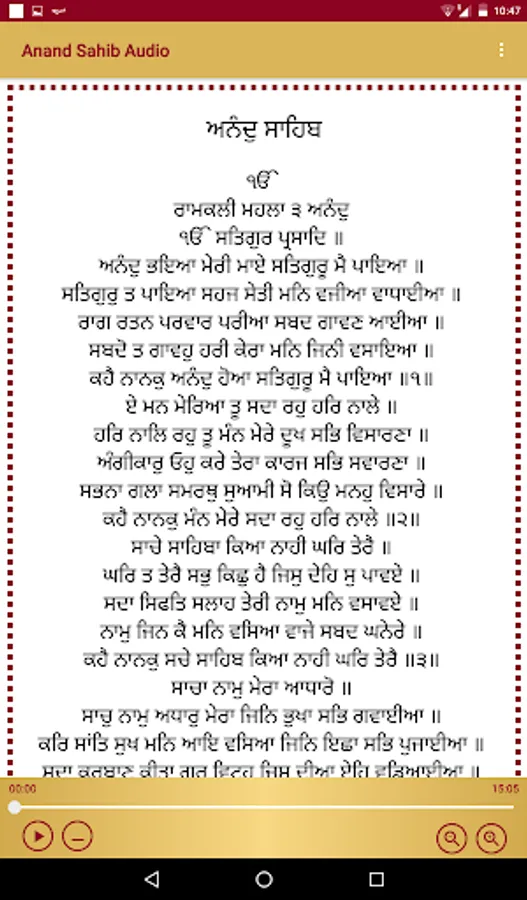 10:47
Anand Sahib Audio
ਅਨੰਦੁ ਸਾਹਿਬ
ੴ
ਰਾਮਕਲੀ ਮਹਲਾ ੩ ਅਨੰਦੁ
ੴ ਸਤਿਗੁਰ ਪ੍ਰਸਾਦਿ ॥
ਅਨੰਦੁ ਭਇਆ ਮੇਰੀ ਮਾਏ ਸਤਿਗੁਰੂ ਮੈ ਪਾਇਆ ॥
ਸਤਿਗੁਰੁ ਤ ਪਾਇਆ ਸਹਜ ਸੇਤੀ ਮਨਿ ਵਜੀਆ ਵਾਧਾਈਆ ॥
ਰਾਗ ਰਤਨ ਪਰਵਾਰ ਪਰੀਆ ਸਬਦ ਗਾਵਣ ਆਈਆ ॥
ਸਬਦੋ ਤ ਗਾਵਹੁ ਹਰੀ ਕੇਰਾ ਮਨਿ ਜਿਨੀ ਵਸਾਇਆ ॥
ਕਹੈ ਨਾਨਕੁ ਅਨੰਦੁ ਹੋਆ ਸਤਿਗੁਰੂ ਮੈ ਪਾਇਆ ॥੧॥
ਏ ਮਨ ਮੇਰਿਆ ਤੂ ਸਦਾ ਰਹੁ ਹਰਿ ਨਾਲੇ ॥
ਹਰਿ ਨਾਲਿ ਰਹੁ ਤੂ ਮੰਨ ਮੇਰੇ ਦੂਖ ਸਭਿ ਵਿਸਾਰਣਾ ॥
ਅੰਗੀਕਾਰੁ ਓਹੁ ਕਰੇ ਤੇਰਾ ਕਾਰਜ ਸਭਿ ਸਵਾਰਣਾ ॥
ਸਭਨਾ ਗਲਾ ਸਮਰਥੁ ਸੁਆਮੀ ਸੋ ਕਿਉ ਮਨਹੁ ਵਿਸਾਰੇ ॥
ਕਹੈ ਨਾਨਕੁ ਮੰਨ ਮੇਰੇ ਸਦਾ ਰਹੁ ਹਰਿ ਨਾਲੇ ॥੨॥
ਸਾਚੇ ਸਾਹਿਬਾ ਕਿਆ ਨਾਹੀ ਘਰਿ ਤੇਰੈ ॥
ਘਰਿ ਤ ਤੇਰੈ ਸਭੁ ਕਿਛੁ ਹੈ ਜਿਸੁ ਦੇਹਿ ਸੁ ਪਾਵਏ ॥
ਸਦਾ ਸਿਫਤਿ ਸਲਾਹ ਤੇਰੀ ਨਾਮੁ ਮਨਿ ਵਸਾਵਏ ॥
ਨਾਮੁ ਜਿਨ ਕੈ ਮਨਿ ਵਸਿਆ ਵਾਜੇ ਸਬਦ ਘਨੇਰੇ ॥
ਕਹੈ ਨਾਨਕੁ ਸਚੇ ਸਾਹਿਬ ਕਿਆ ਨਾਹੀ ਘਰਿ ਤੇਰੈ ॥੩॥
ਸਾਚਾ ਨਾਮੁ ਮੇਰਾ ਆਧਾਰੋ ॥
ਸਾਚੁ ਨਾਮੁ ਅਧਾਰੁ ਮੇਰਾ ਜਿਨਿ ਭੁਖਾ ਸਭਿ ਗਵਾਈਆ ॥
ਕਰਿ ਸਾਂਤਿ ਸੁਖ ਮਨਿ ਆਇ ਵਸਿਆ ਜਿਨਿ ਇਛਾ ਸਭਿ ਪੁਜਾਈਆ ॥
ਸਦਾ ਕੁਰਬਾਣੁ ਕੀਤਾ ਗੁਰੂ ਵਿਟਹੁ ਜਿਸ ਦੀਆ ਏਹਿ ਵਡਿਆਈਆ ॥
00:00
15:05